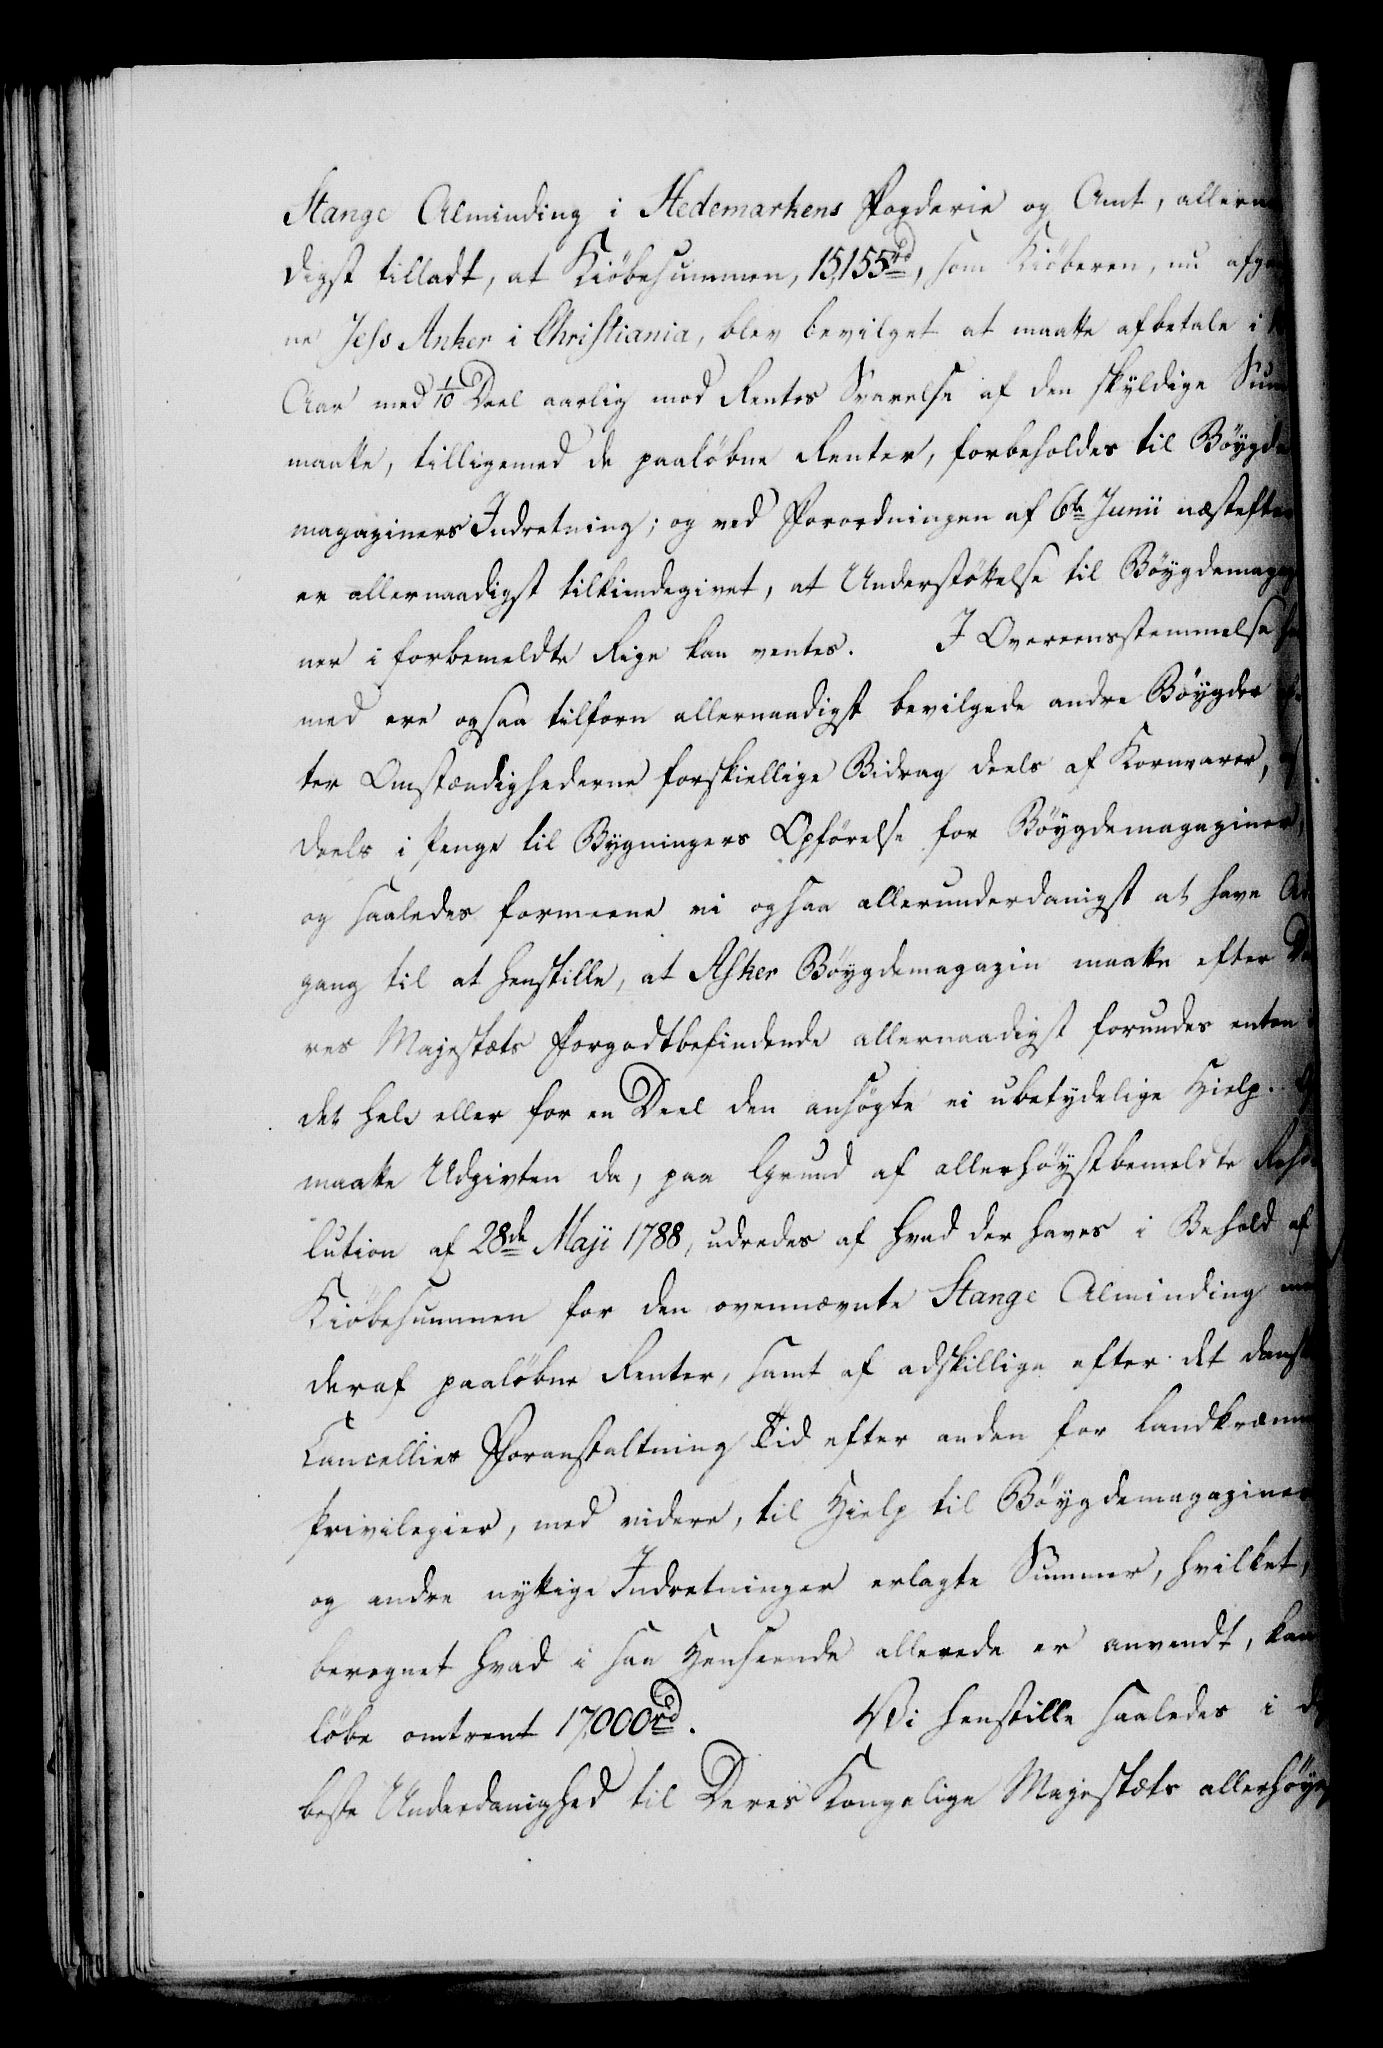 Stange Alminding i Hedemarkens Fogderie og Amt, allerna
digst tilladt, at Kiöbesummen, 15,155rd, som Kiöberen, nu afg
ne Jess Anker i Christiania, blev bevilget at maatte afbetale i
Aar med 1/10 Deel aarlig mod Rentes Svarelse af den skyldige Sum
maatte, tilligemed de paalöbne Renter, forbeholdes til Böygde
magaziners Indretning; og ved Forordningen af 6te Junii næstefter
er allernaadigst tilkiendegivet, at Understöttelse til Böygdemaga
ner i forbemeldte Rige kan ventes. I Overeensstemmelse he
med ere ogsaa tilforn allernaadigst bevilgede andre Böygder ef
ter Omstændighederne forskiellige Bidrag deels af Kornvarer,
deels i Penge til Bygningers Opförelse for Böygdemagaziner,
og saaledes formeene vi ogsaa allerunderdanigst at have Ad
gang til at henstille, at Asker Böygdemagazin maatte efter De
res Majestæts Forgodtbefindende allernaadigst forundes enten
det hele eller for en Deel den ansögte ei ubetydelige Hielp.
maatte Udgivten da, paa Grund af allerhöystbemeldte Reso
lution af 28de Maji 1788, udredes af hvad der haves i Behold af
Kiöbesummen for den ovennævnte Stange Alminding me
deraf paalöbne Renter, samt af adskillige efter det danske
Cancellies Foranstaltning Tid efter anden for Landkræmm
Privilegier, med videre, til Hielp til Böygdemagaziner
og andre nyttige Indretninger erlagte Summer, hvilket,
beregnet hvad i saa Henseende allerede er anvendt, kan
löbe omtrent 17,000rd. Vi henstille saaledes i d
beste Underdanighed til Deres Kongelige Majestæts allerhöy